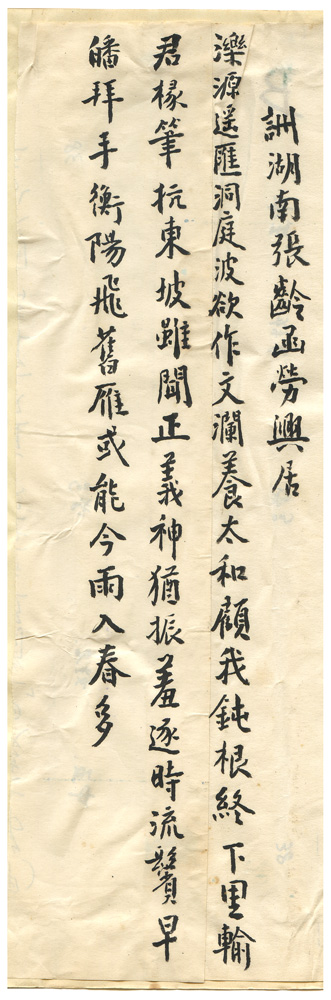 詶湖南張齡函勞興居
濼源遥匯洞庭波欲作文瀾養太和顧我鈍根終下里輸
君椽筆杭東坡雖聞正義神猶振羞逐時流鬢早
皤拜手衡陽飛舊雁或能今雨入春多